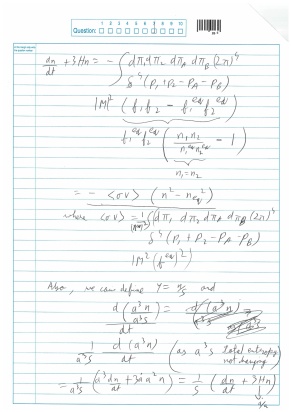 Question: 1 2 3 4 5 6 7 8 9 10
dn/dt + 3Hn = - ∫ dπ₁ dπ₂ dπ_A dπ_B (2π)⁴
δ⁴ (p₁ + p₂ - p_A - p_B)
|M|² (f₁f₂ - f₁^eq f₂^eq)
f₁^eq f₂^eq (n₁n₂ / n₁^eq n₂^eq - 1)
n₁ = n₂
= - <σv> (n² - n_eq²)
where <σv> = ∫ dπ₁ dπ₂ dπ_A dπ_B (2π)⁴
δ⁴ (p₁ + p₂ - p_A - p_B)
|M|² (f^eq)²
Also, we can define Y = n/s and
d(a³n) / a³s dt =
1/a³s d(a³n)/dt (as a³s total entropy
not changing)
= 1/a³s (a³dn/dt + 3ȧa²n) = 1/s (dn/dt + 3Hn)